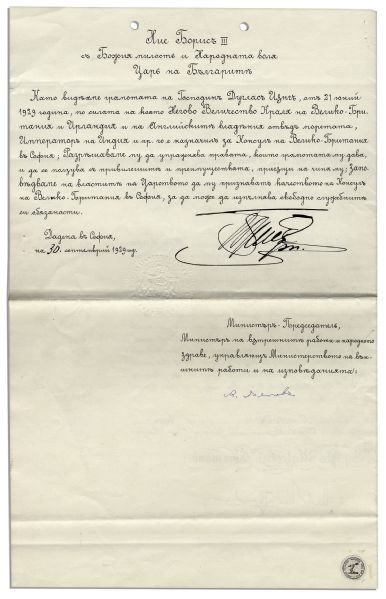 Ние Борисъ III
съ Божия милость и Народната воля
Царь на Българитѣ
Като видѣхме грамотата на Господинъ Дугласъ от 21 юний
1929 година, по силата на която Негово Величество Краля на Велико-Бри-
тания и Ирландия и на Английските владѣния отвъдъ моретата,
Императоръ на Индия и пр. го е назначилъ за Консулъ на Велико-Британия
въ София; Разрѣшаваме му да упражнява правата, които грамотата му дава,
и да се ползува съ привилегиитѣ и преимуществата, присъщи на чина му; запо-
вѣдваме на властитѣ на Царството да му признаватъ качеството на Консулъ
на Велико-Британия въ София, за да може да изпълнява свободно служебнитѣ
си обязаности.
Дадена въ София,
на 30. септемврий 1929 год.
Министъръ-Председатель,
Министъръ на вѫтрешнитѣ работи и народното
здраве, управляющъ Министерството на вън-
шнитѣ работи и на изповѣданията: